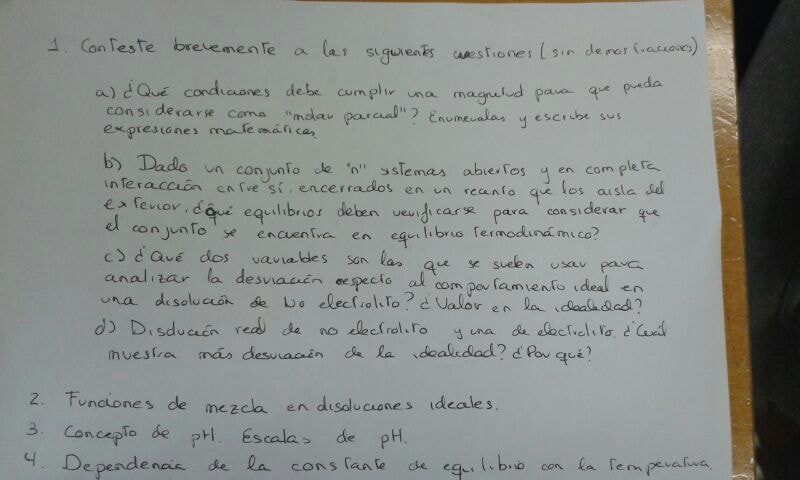 1. Conteste brevemente a las siguientes cuestiones (sin demostraciones)
a) ¿Qué condiciones debe cumplir una magnitud para que pueda
considerarse como "molar parcial"? Enumeralas y escribe sus
expresiones matemáticas.
b) Dado un conjunto de "n" sistemas abiertos y en completa
interacción entre sí, encerrados en un recinto que los aisla del
exterior, ¿qué equilibrios deben verificarse para considerar que
el conjunto se encuentra en equilibrio termodinámico?
c) ¿Qué dos variables son las que se suelen usar para
analizar la desviación respecto al comportamiento ideal en
una disolución de No electrolito? ¿Valor en la idealidad?
d) Disolución real de no electrolito y una de electrolito. ¿Cuál
muestra más desviación de la idealidad? ¿Por qué?
2. Funciones de mezcla en disoluciones ideales.
3. Concepto de pH. Escalas de pH.
4. Dependencia de la constante de equilibrio con la temperatura.